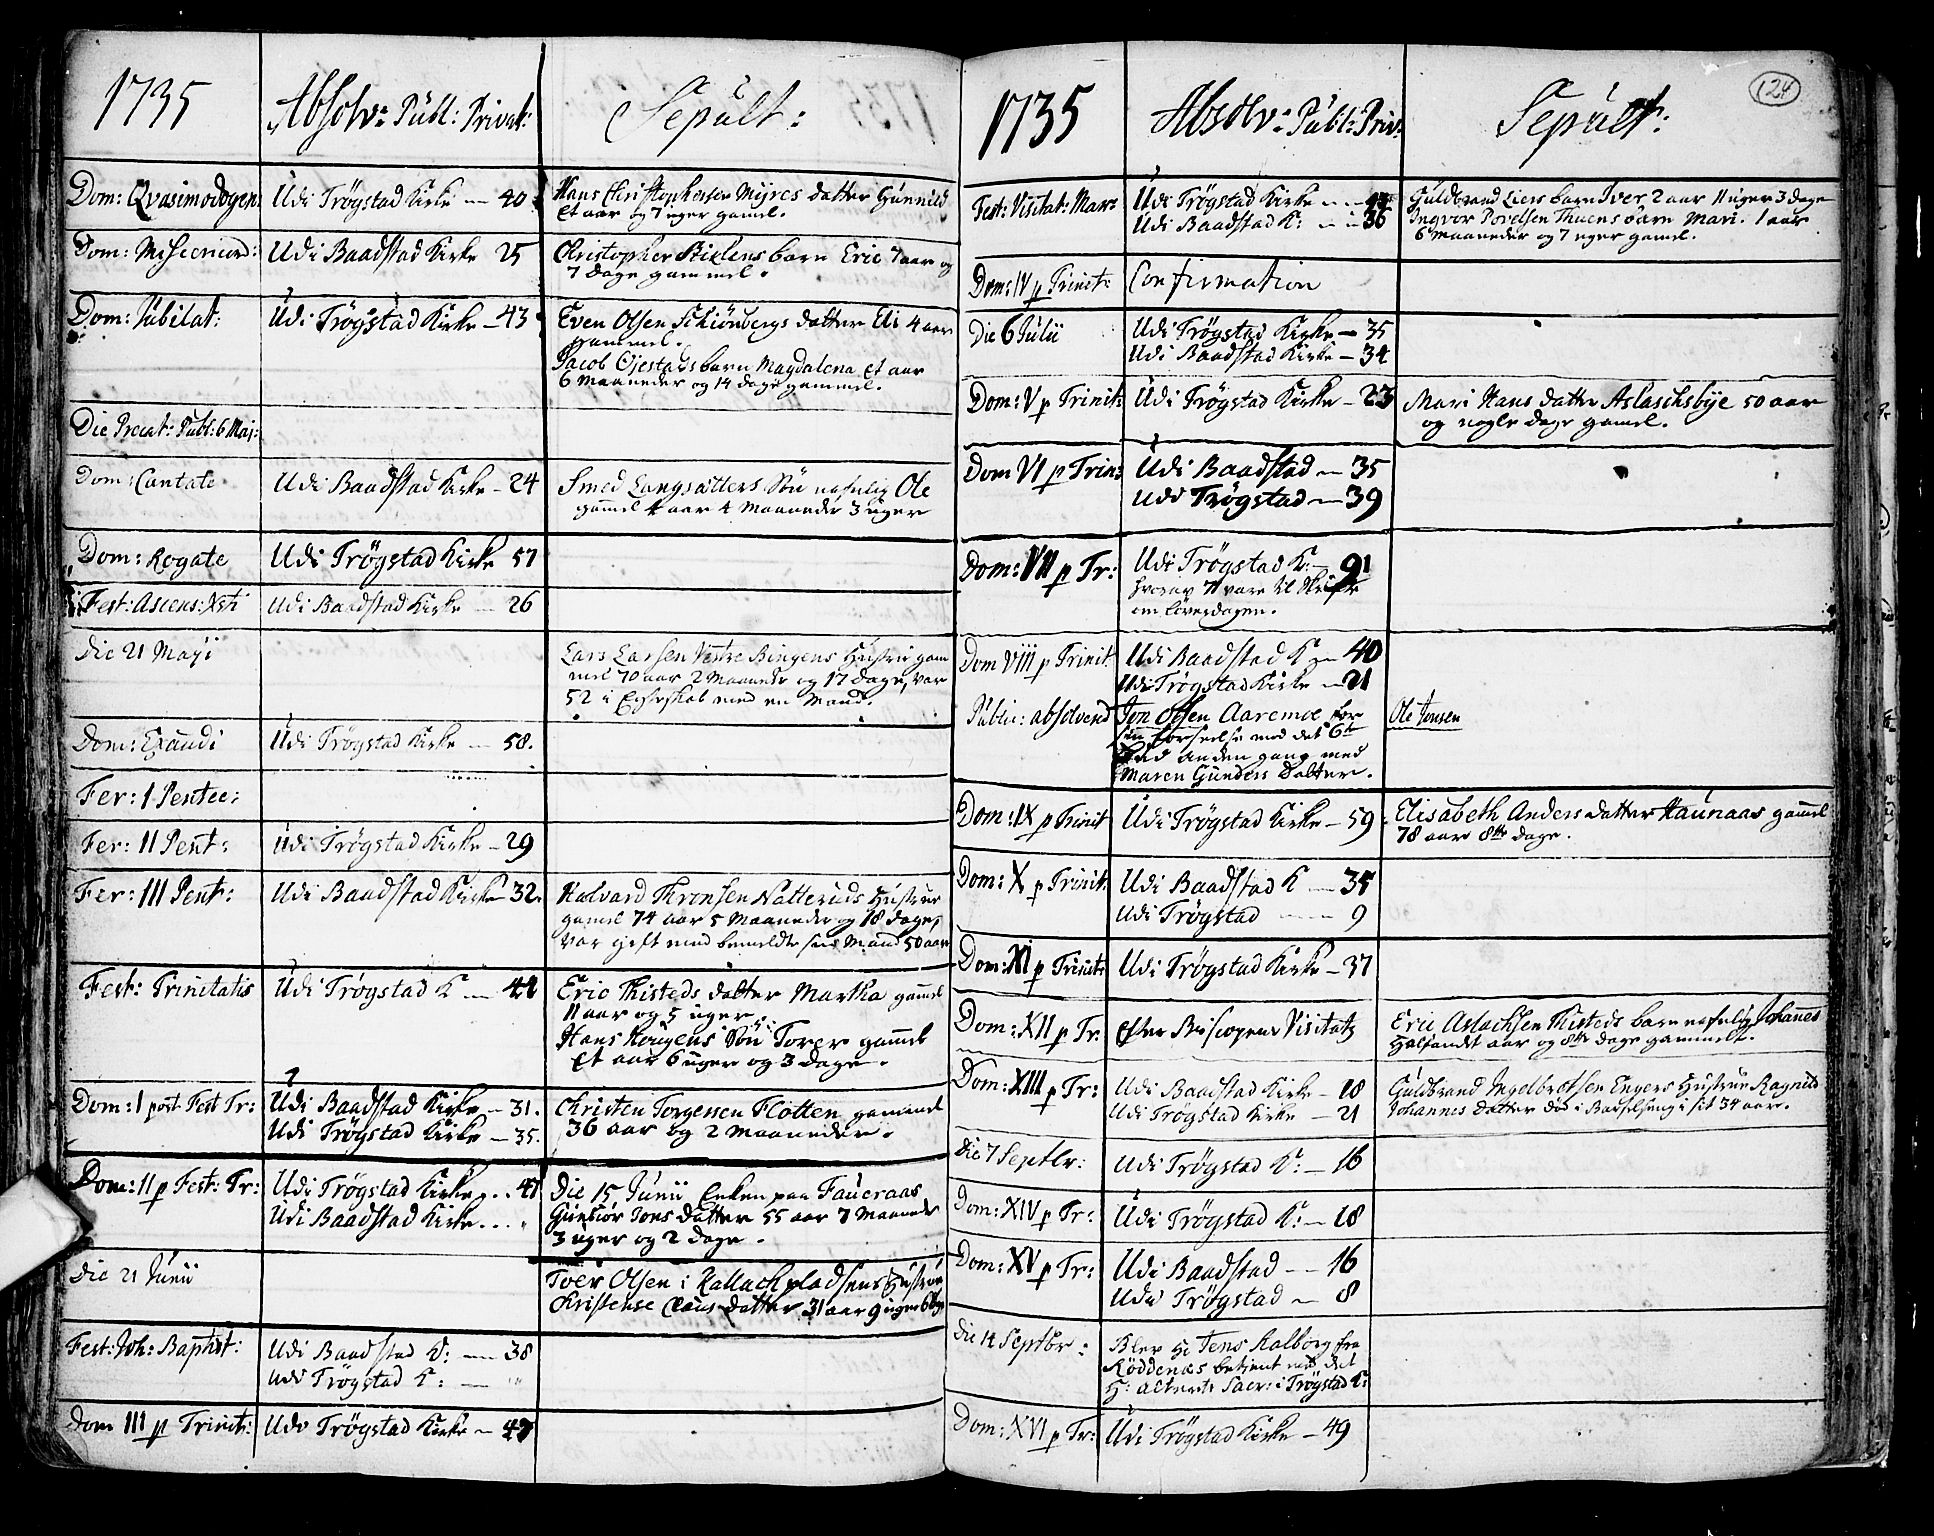 1735
Absolv: Publ: Privat:
Sepult:
Dom: Qvasimodogen:
Udi Trögstad Kirke — 40
Hans Christophersen Mÿres datter Gunnild
Et aar og 7 uger gamel.
Dom: Misericord:
Udi Baadstad Kirke 25
Christopher barn Eric 7 aar og
7 dage gammel.
Dom: Jubilat:
Udi Trögstad Kirke — 43
Even Olsen Schiönbergs datter Eli 4 aar
gammel.
Jacob barn Magdalena Et aar
6 Maaneder og 14 dage gammel.
Die Precat: Publ: 6 Maj:
Dom: Cantate
Udi Baadstad Kirke — 24
Smed Langsætters Sön nafnlig Ole
gamel 4 aar 4 Maaneder 3 uger
Dom: Rogate
Udi Trögstad Kirke 57
Fest: Ascens: Xsti
Udi Baadstad Kirke — 26
Die 21 Maÿi
Lars Larsen Vestre Bingens Hustru gam
mel 70 aar 2 Maaneder og 17 dage, var
52 i Egteskab med en Mand.
Dom: Exaudi
Udi Trögstad Kirke — 58.
Fer: I Pentec:
Fer: II Pent:
Udi Trögstad Kirke — 29
Fer: III Pent:
Udi Baadstad Kirke 32.
Halvard Thronsen Natteruds Hustrue
gamel 74 aar 5 Maaneder og 18 dage,
var gift med bemeldte sin Mand 50 aar
Fest: Trinitatis
Udi Trögstad K — 44
Eric Thisteds datter Martha gamel
11 aar og 5 uger
Hans Hougens Sön Torer gamel
Et aar 6 uger og 3 dage.
Dom: I post Fest Tr:
Udi Baadstad Kirke — 31.
Udi Trögstad Kirke — 35.
Christen Torgersen Flotten gammel
36 aar og 2 Maaneder.
Dom: II p Fest: Tr:
Udi Trögstad Kirke . . 41
Udi Baadstad Kirke . . . "
Die 15 Junii Enken paa Faueraas
Gunbiör Jons datter 55 aar 7 Maaneder
3 uger og 2 dage.
Die 21 Junii
Iver Olsen i Kallachpladsens Hustrue
Christense Claus datter 31 aar 9 uger
Fest: Joh: Baptist:
Udi Baadstad K: — 38
Udi Trögstad K: — "
Dom III p Trinit:
Udi Trögstad Kirke — 47
1735
Absolv: Publ: Priv:
Sepult:
124
Fest: Visitat: Mar:
Udi Trögstad Kirke — —
Udi Baadstad K: — — 36
Guldbrand Liers barn Iver 2 aar 11 uger 3 dage
Ingvor Povelsen Thuens barn Mari. 1 aar
6 Maaneder og 7 uger gamel.
Dom: IV p Trinit:
Confirmation
Die 6 Julii
Udi Trögstad Kirke — 35
Udi Baadstad Kirke — 34
Dom: V p Trinit:
Udi Trögstad Kirke — 23
Mari Hans datter Aslachsbÿe 50 aar
og nogle dage gamel.
Dom VI p Trin:
Udi Baadstad — 35
Udi Trögstad — 39
Dom: VII p Tr:
Udi Trögstad K: — 91
hvoraf 7 vare til Skrifte
om Löverdagen.
Dom VIII p Trinit
Udi Baadstad K — 40
Udi Trögstad Kirke — 21
Public: absolvered
Jon Olsen Aaremoe for
sin forseelse mod det 6te
Bud anden gang med
Maren Gunders Datter.
Ole Jonsen
Dom: IX p Trinit
Udi Trögstad Kirke — 59
Elisabeth Anders datter Haunaas gamel
78 aar 8te dage.
Dom: X p Trinit:
Udi Baadstad K — 35
Udi Trögstad — 9
Dom: XI p Trinit:
Udi Trögstad Kirke — 37
Dom: XII p Tr:
Efter Biscopens Visitatz
Eric Aslachsen Thisteds barn nafnlig Johannes
Halfandet aar og 8te dage gammelt.
Dom: XIII p Tr:
Udi Baadstad Kirke — 18
Udi Trögstad Kirke — 21
Guldbrand Ingelbretsen Engers Hustrue Ragnild
Johannes datter död i Barselseng i sit 34 aar.
Die 7 Septbr:
Udi Trögstad K: — 16
Dom: XIV p Tr:
Udi Trögstad K: — 18
Dom: XV p Tr:
Udi Baadstad — — 16
Udi Trögstad — 8
Die 14 Septbr:
Blev Hr Jens Aalborg fra
Röddenæs betient med det
H: Altertz Sacr: i Trögstad K:
Dom: XVI p Tr:
Udi Trögstad Kirke — 49